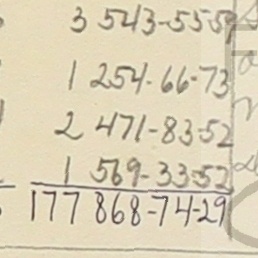 3 543-55-59
1 254-66-73
2 471-83-52
1 569-33-52
177 868-74-29